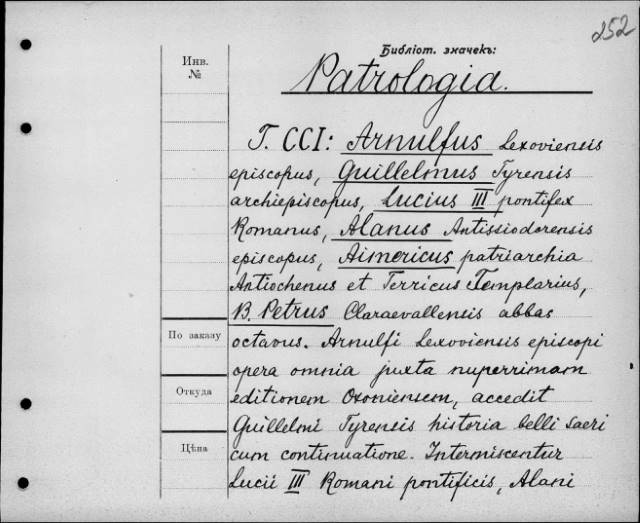 252
Библіот. значекъ:
Patrologia.
Инв.
№
T. CCI: Arnulfus Lexoviensis
episcopus, Guillelmus Tyrensis
archiepiscopus, Lucius III pontifex
Romanus, Alanus Antissiodorensis
episcopus, Aimericus patriarchia
Antiochenus et Terricus Templarius,
B. Petrus Claraevallensis abbas
octavus. Arnulfi Lexoviensis episcopi
opera omnia juxta nuperrimam
editionem Oxoniensem, accedit
Guillelmi Tyrensis historia belli sacri
cum continuatione. Intermiscentur
Lucii III Romani pontificis, Alani
По заказу
Откуда
Цѣна